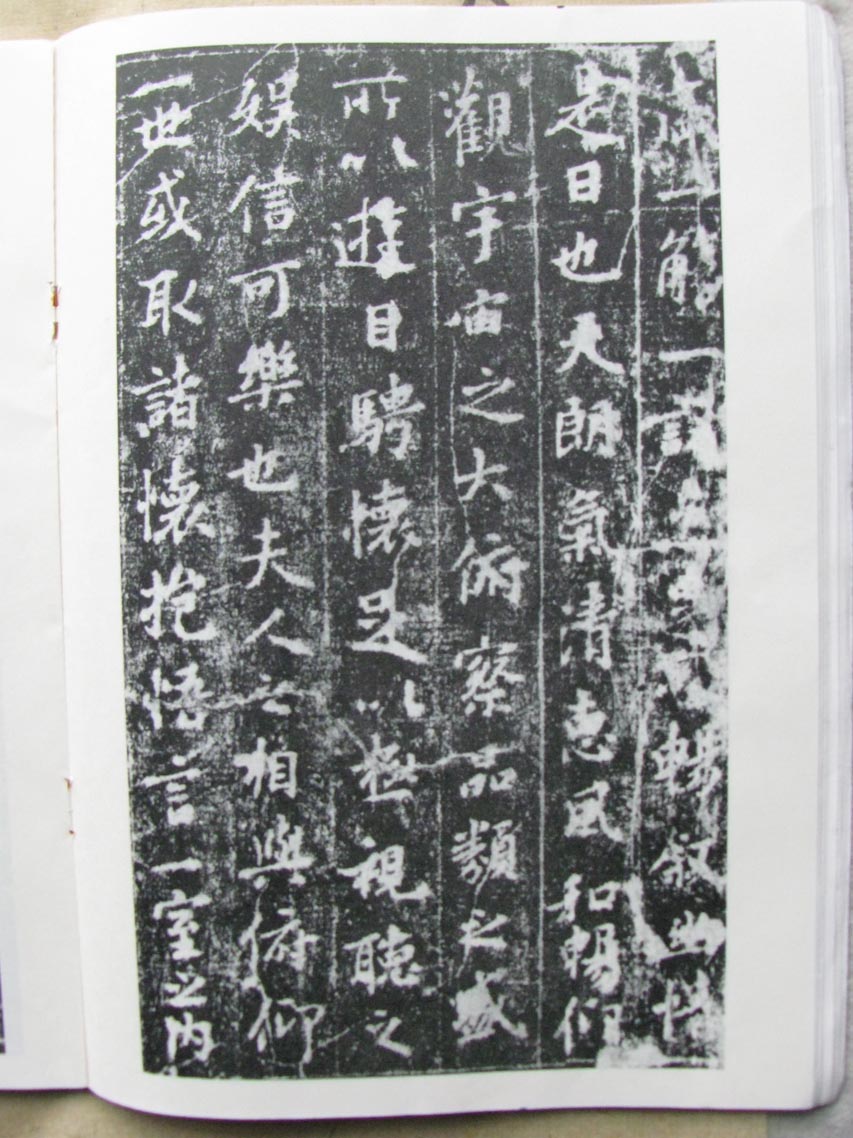 一觴一詠暢敘幽情
是日也天朗氣清惠風和暢仰
觀宇宙之大俯察品類之盛
所以遊目騁懷足以極視聽之
娛信可樂也夫人之相與俯仰
一世或取諸懷抱悟言一室之内